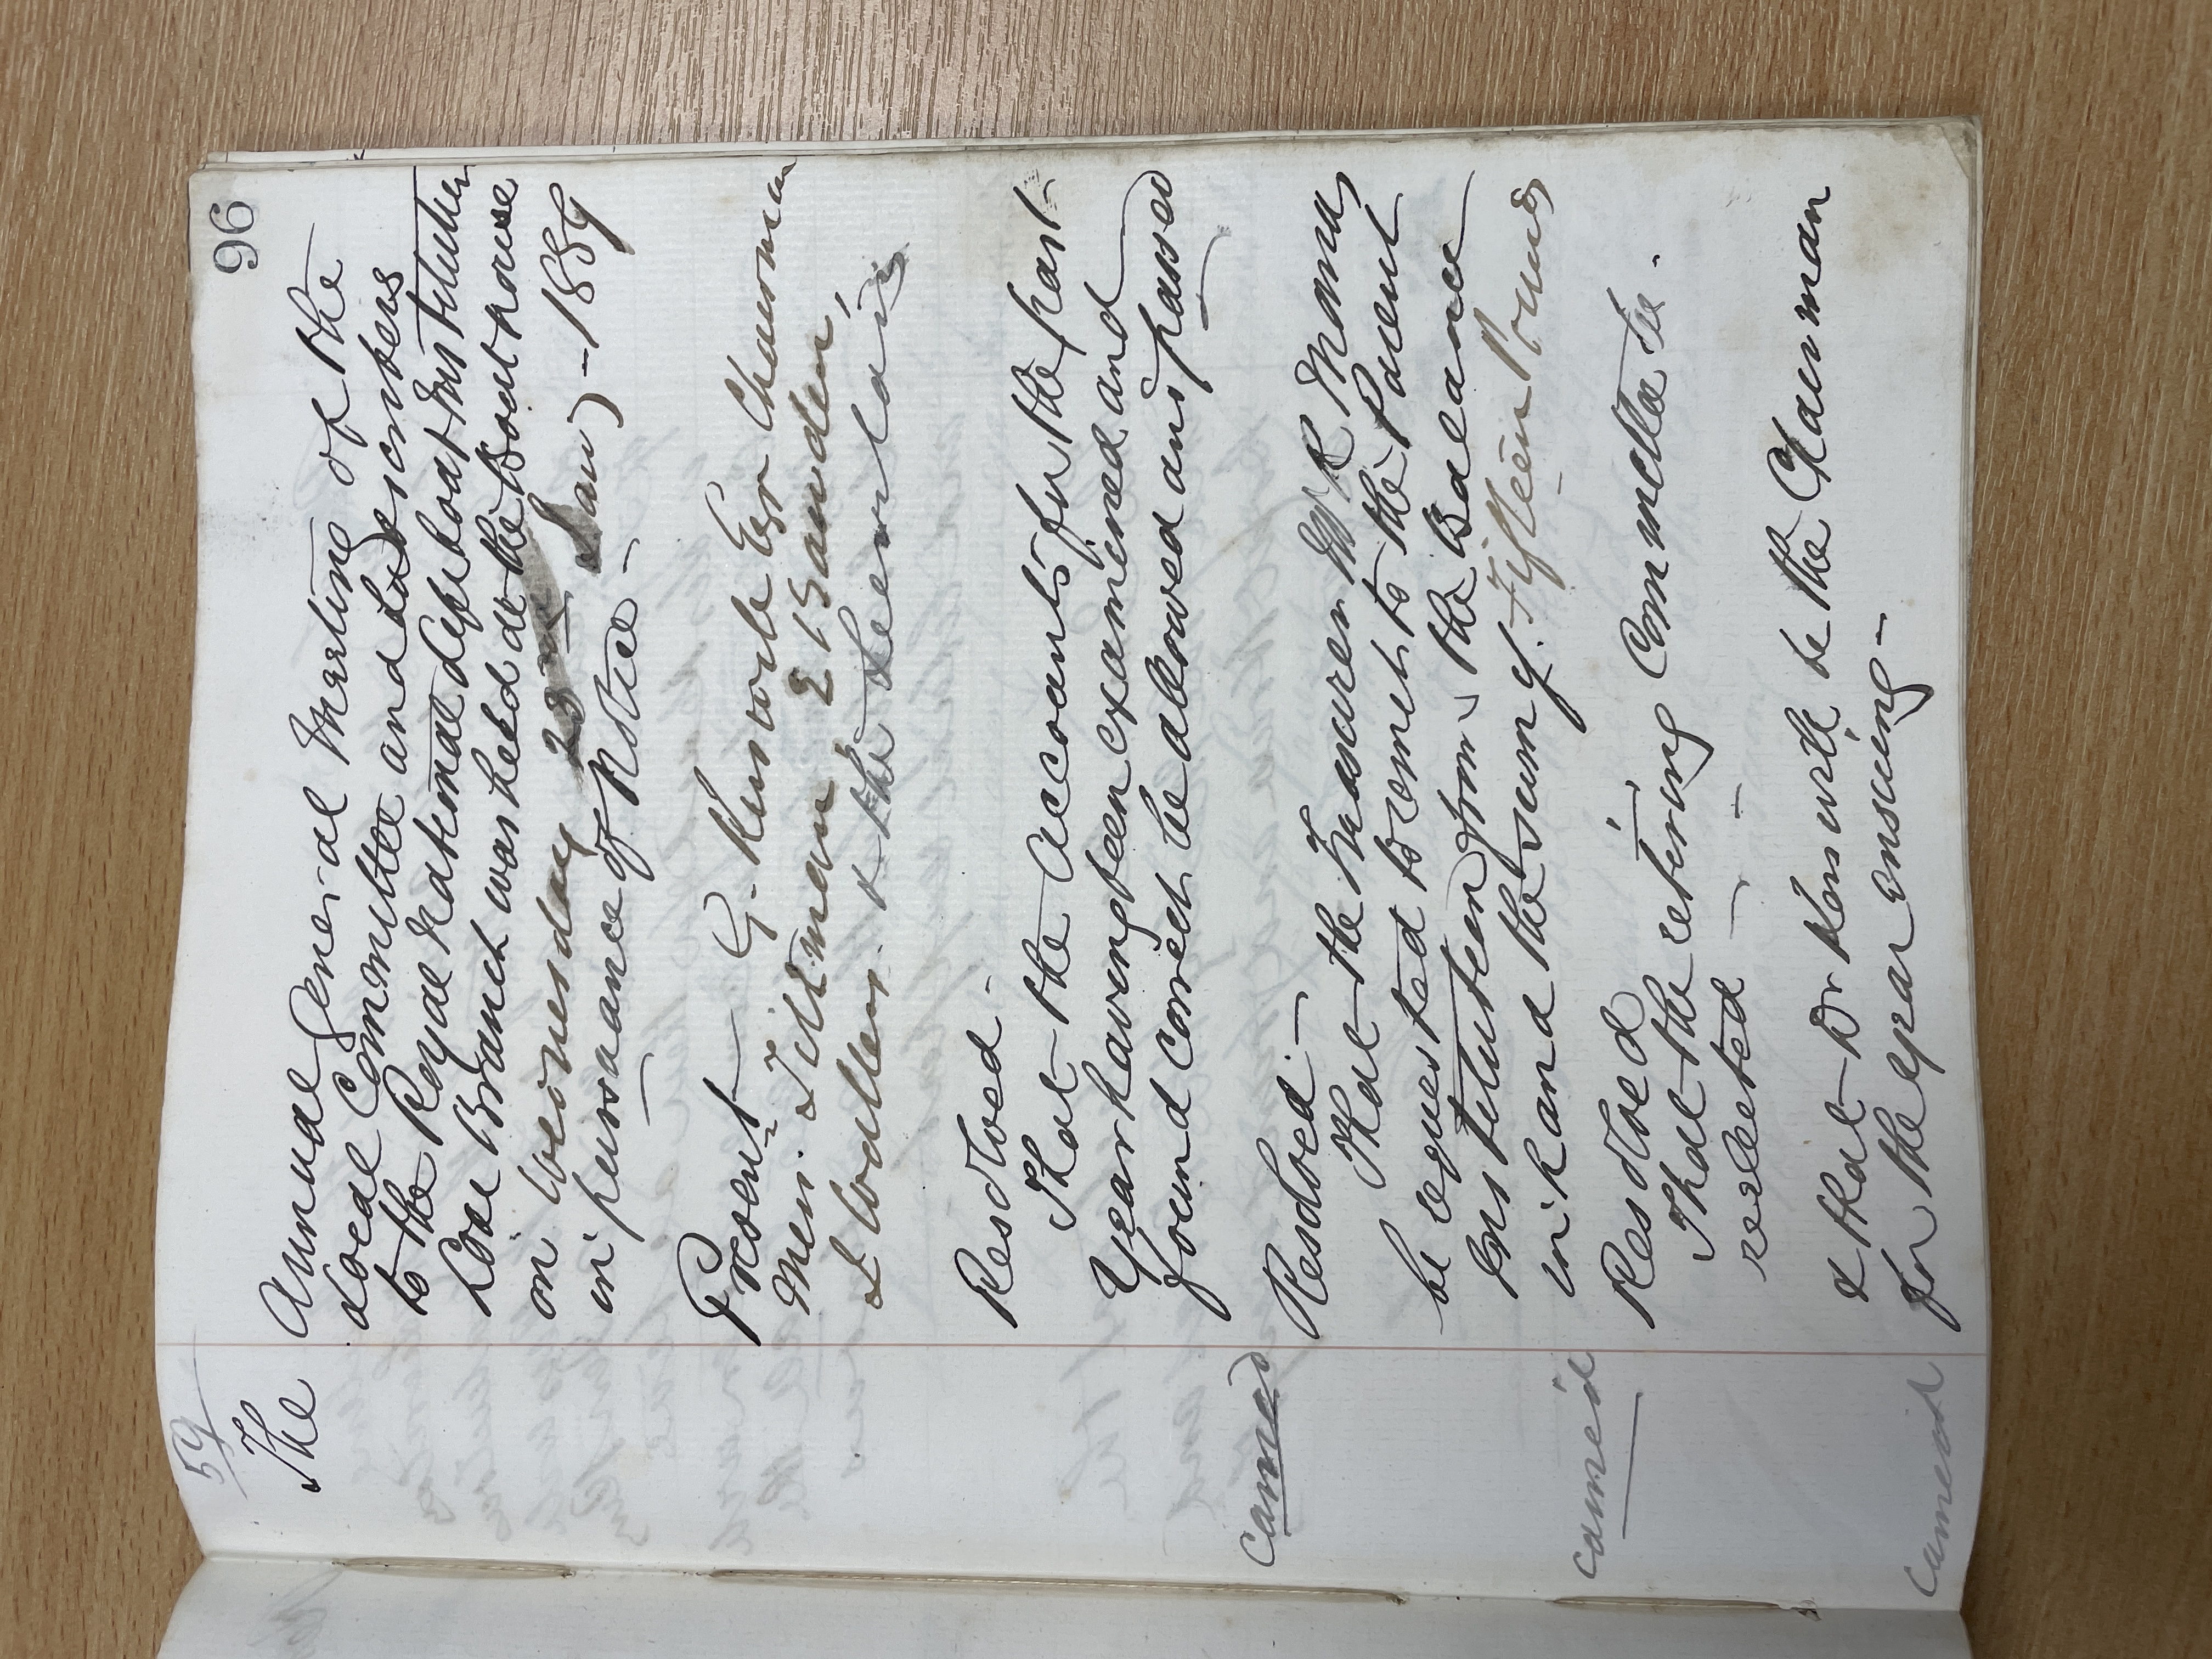 96
59
The Annual General Meeting of the
Local Committee and Subscribers
to the Royal National Lifeboat Institution
Looe Branch was held at the Boat house
on Wednesday 23rd Jany - 1889
in pursuance of Notice -
Present - G. Kerswill Esqr Chairman
Messrs.
& the
Resolved -
That the Accounts for the past
Year having been examined and
found correct be allowed and passed
carried
Resolved. -
That the Treasurer Mr R Thomas
be requested to remit to the Parent
Institution from the Balance
in hand the sum of. Fifteen Pounds
carried
Resolved
That the retiring Committee be.
reelected -
& that Dr Kerswill be the Chairman
for the year ensuing -
carried